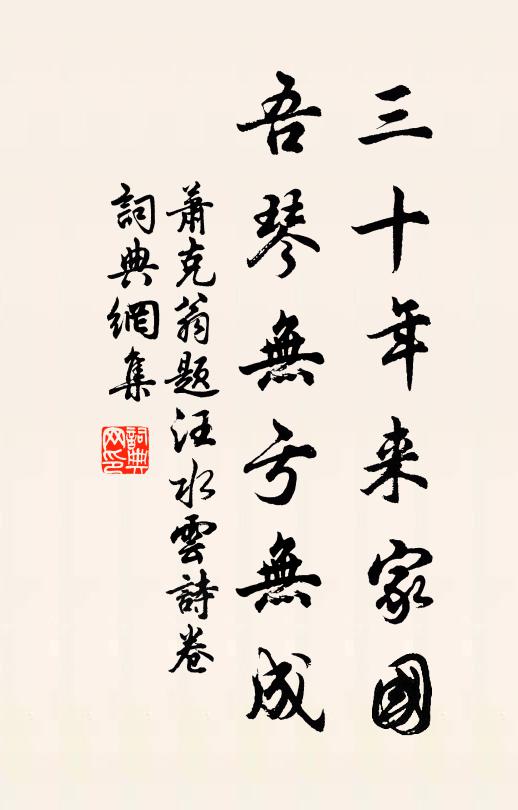 三十年来家國
吾琴無亏無成
蕭克翁題汪水雲詩卷
詞典網集
詞典网印